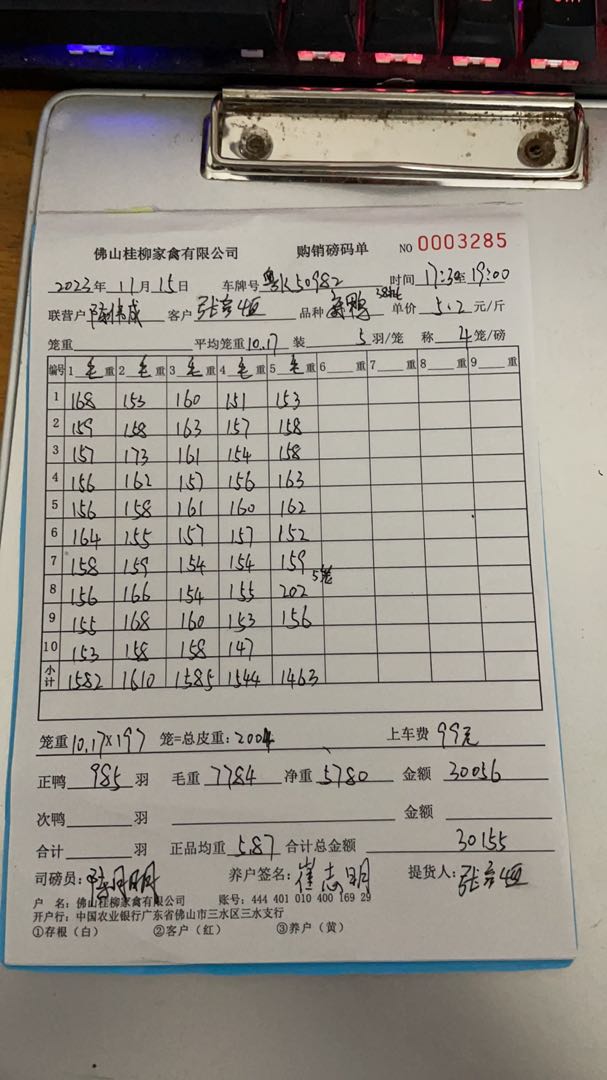 佛山桂柳家禽有限公司 购销磅码单 NO 0003285
2023年 11月 15日 车牌号 粤K50982 时间 17:30至 19:00
联营户 成 客户 张 品种 鸭 单价 5.2 元/斤
笼重 平均笼重 10.17 装 5 羽/笼 称 4 笼/磅
编号 1 毛 重 2 毛 重 3 毛 重 4 毛 重 5 毛 重 6 重 7 重 8 重 9 重
1 168 153 160 151 153
2 159 158 163 157 158
3 157 173 161 154 158
4 156 162 157 156 163
5 156 158 161 160 162
6 164 155 157 157 152
7 158 159 154 154 159
8 156 166 154 155 202 5笼
9 155 168 160 153 156
10 153 158 158 147
小计 1582 1610 1585 1544 1463
笼重 10.17×197 笼=总皮重: 2004 上车费 99元
正鸭 985 羽 毛重 7784 净重 5780 金额 30056
次鸭 羽 金额
合计 羽 正品均重 5.87 合计总金额 30155
司磅员: 养户签名: 崔志明 提货人: 张
户 名: 佛山桂柳家禽有限公司 账号: 444 401 010 400 169 29
开户行: 中国农业银行广东省佛山市三水区三水支行
①存根(白) ②客户(红) ③养户(黄)